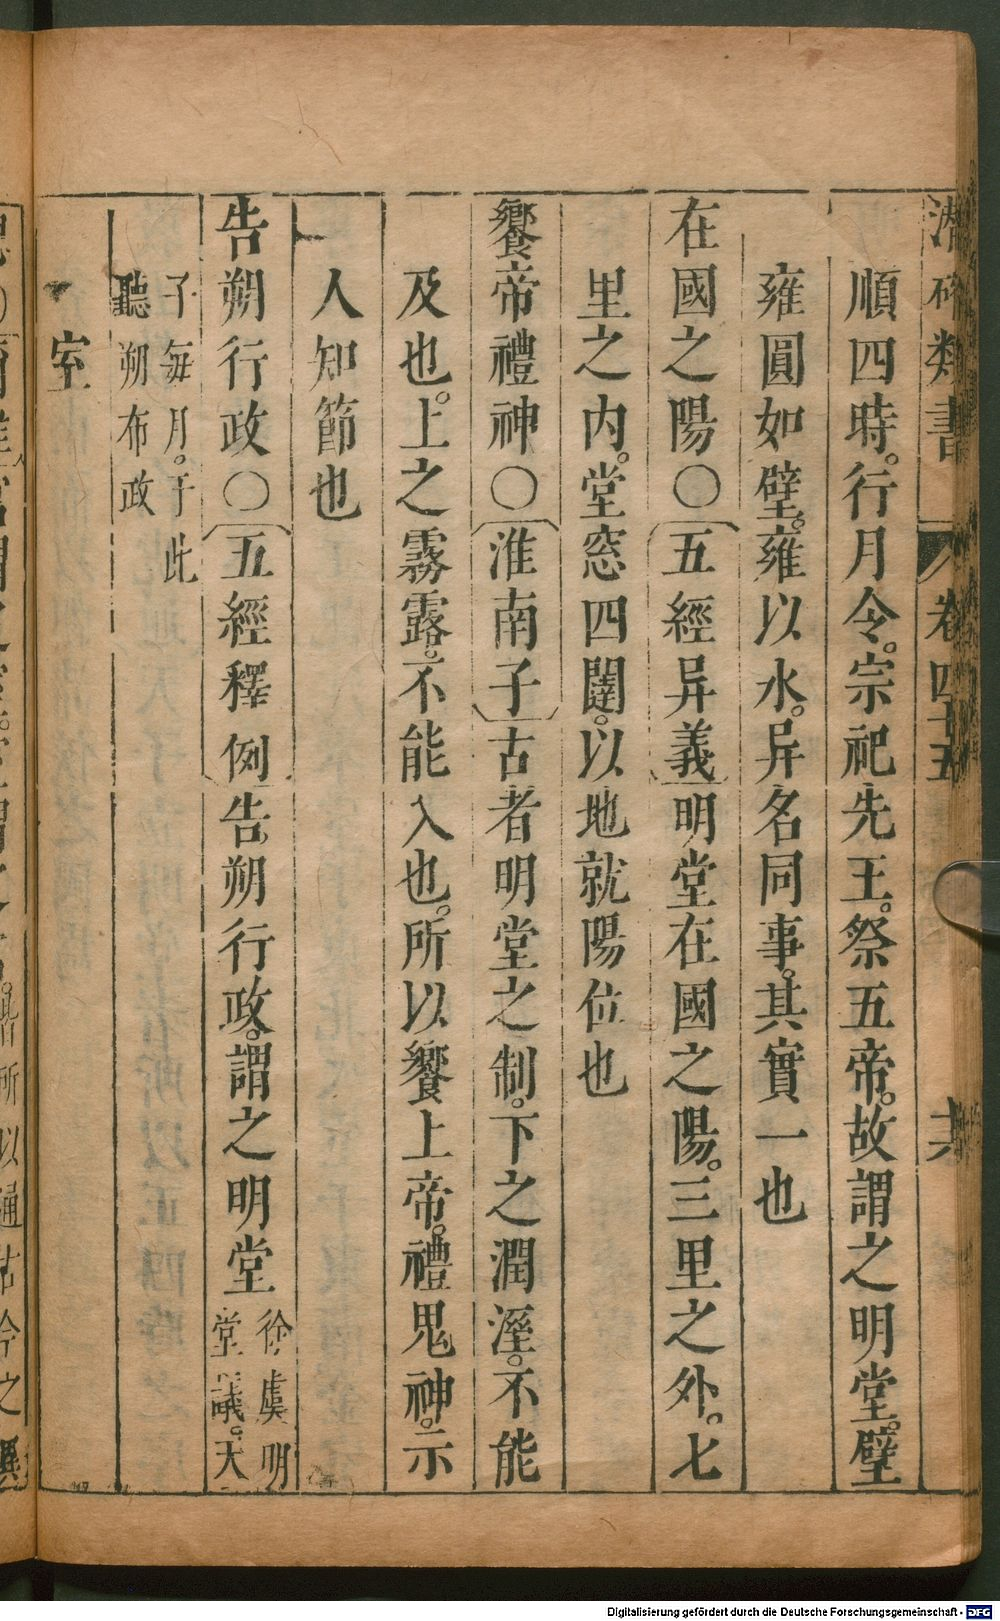 潛確類書 卷四十五
順四時。行月令。宗祀先王。祭五帝。故謂之明堂。璧
雍圓如璧。雍以水。异名同事。其實一也
在國之陽○〔五經异義〕明堂在國之陽。三里之外。七
里之內。堂窓四闥。以地就陽位也
饗帝禮神○〔淮南子〕古者明堂之制。下之潤溼。不能
及也。上之霧露。不能入也。所以饗上帝。禮鬼神。示
人知節也
告朔行政○〔五經釋例〕告朔行政。謂之明堂 徐虔明
堂議。天
子每月。于此
聽朔布政
室
所以通古今之
Digitalisierung gefördert durch die Deutsche Forschungsgemeinschaft - DFG